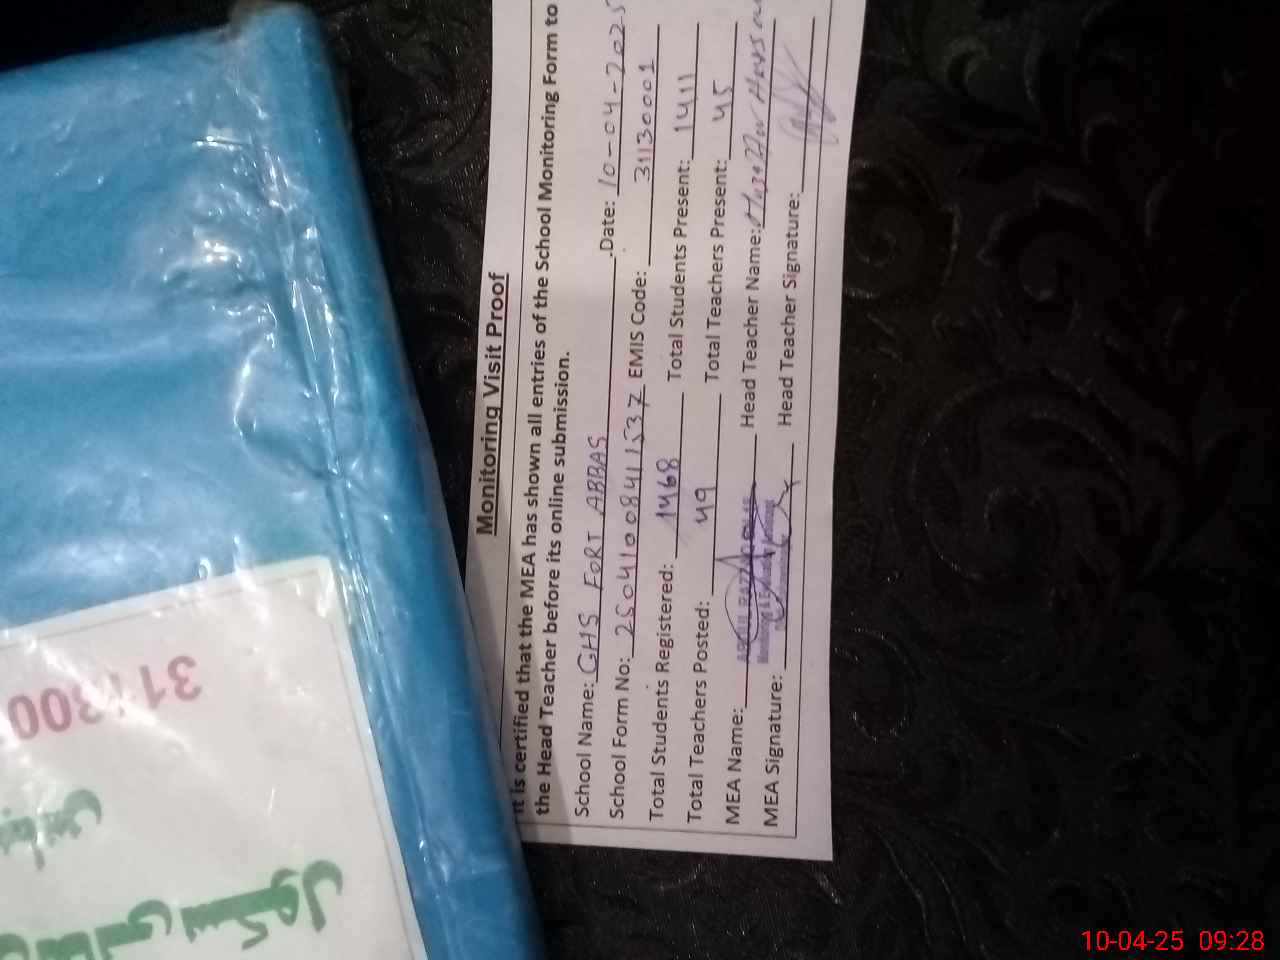 Monitoring Visit Proof
It is certified that the MEA has shown all entries of the School Monitoring Form to
the Head Teacher before its online submission.
School Name: GHS FORT ABBAS .Date: 10-04-2025
School Form No: 250410084 1537 EMIS Code: 31130001
Total Students Registered: 1468 Total Students Present: 1411
Total Teachers Posted: 49 Total Teachers Present: 45
MEA Name: Head Teacher Name:
Monitoring & Evaluation
MEA Signature: Head Teacher Signature:
311300
سکول
10-04-25 09:28